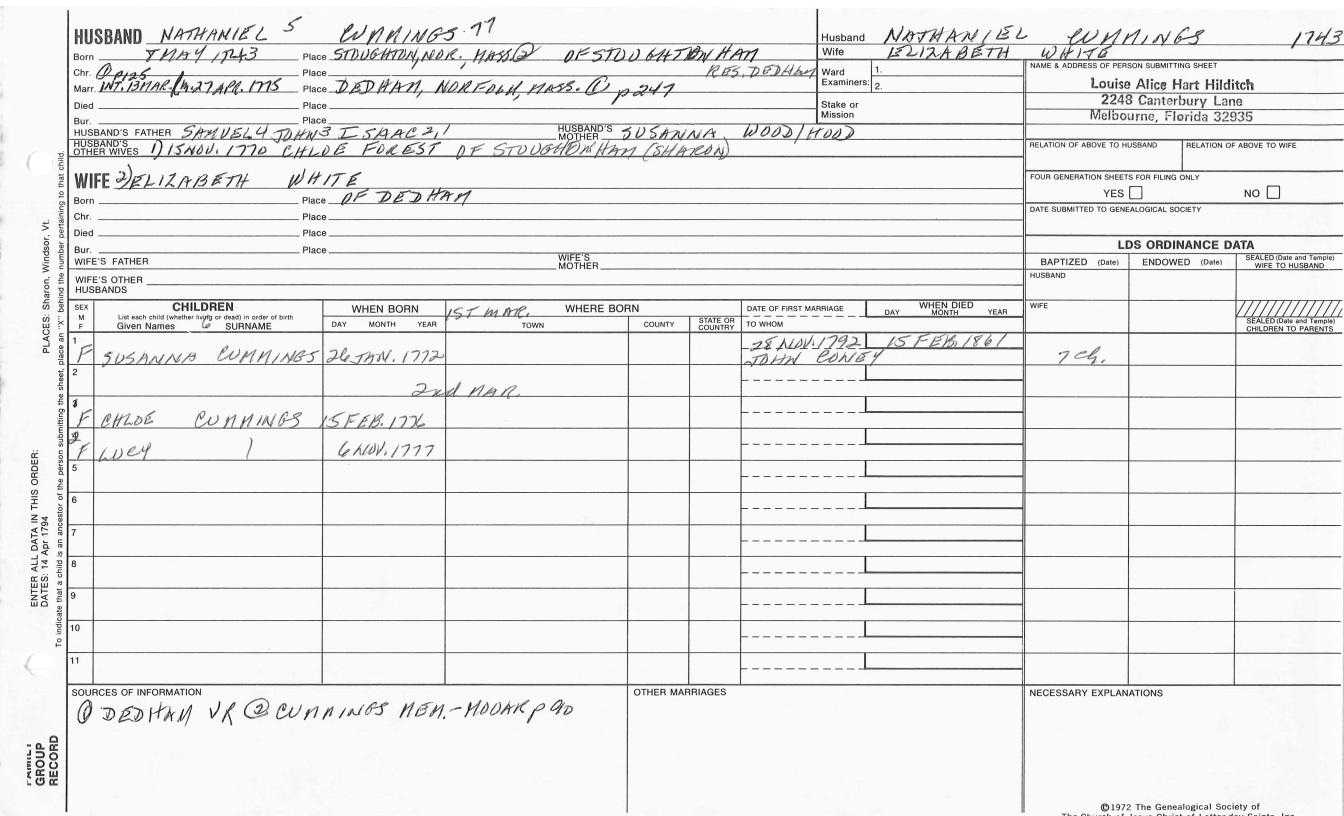 HUSBAND NATHANIEL 5 CUMMINGS
Born 7 MAY 1743 Place STOUGHTON, NOR., MASS ② OF STOUGHTONHAM
Chr. ① p125 Place RES. DEDHAM
Marr. INT. 13 MAR. 27 APR. 1775 Place DEDHAM, NORFOLK, MASS. ① p 247
Died Place
Bur. Place
HUSBAND'S FATHER SAMUEL 4 JOHN 3 ISAAC 2,1 HUSBAND'S MOTHER SUSANNA WOOD/HOOD
HUSBAND'S OTHER WIVES 1) 15 NOV. 1770 CHLOE FOREST OF STOUGHTONHAM (SHARON)
WIFE 2) ELIZABETH WHITE
Born Place OF DEDHAM
Chr. Place
Died Place
Bur. Place
WIFE'S FATHER WIFE'S MOTHER
WIFE'S OTHER HUSBANDS
Husband NATHANIEL CUMMINGS 1743
Wife ELIZABETH WHITE
Ward Examiners: 1.
2.
Stake or Mission
NAME & ADDRESS OF PERSON SUBMITTING SHEET
Louise Alice Hart Hilditch
2248 Canterbury Lane
Melbourne, Florida 32935
RELATION OF ABOVE TO HUSBAND RELATION OF ABOVE TO WIFE
FOUR GENERATION SHEETS FOR FILING ONLY
YES NO
DATE SUBMITTED TO GENEALOGICAL SOCIETY
LDS ORDINANCE DATA
BAPTIZED (Date) ENDOWED (Date) SEALED (Date and Temple) WIFE TO HUSBAND
HUSBAND
WIFE
SEALED (Date and Temple) CHILDREN TO PARENTS
SEX M F
CHILDREN
List each child (whether living or dead) in order of birth
Given Names 6 SURNAME
WHEN BORN
DAY MONTH YEAR
1ST MAR. WHERE BORN
TOWN COUNTY STATE OR COUNTRY
DATE OF FIRST MARRIAGE
TO WHOM
WHEN DIED
DAY MONTH YEAR
1 28 NOV. 1792 15 FEB. 1861
F SUSANNA CUMMINGS 26 JAN. 1772 JOHN CONEY 7 Ch.
2
2nd MAR.
F CHLOE CUMMINGS 15 FEB. 1776
F LUCY 6 NOV. 1777
5
6
7
8
9
10
11
SOURCES OF INFORMATION
① DEDHAM VR ② CUMMINGS MEM. - MOOAR p 90
OTHER MARRIAGES
NECESSARY EXPLANATIONS
©1972 The Genealogical Society of
The Church of Jesus Christ of Latter-day Saints, Inc.
PLACES: Sharon, Windsor, Vt.
ENTER ALL DATA IN THIS ORDER:
DATES: 14 Apr 1794
To indicate that a child is an ancestor of the person submitting the sheet, place an "X" behind the number pertaining to that child.
FAMILY GROUP RECORD